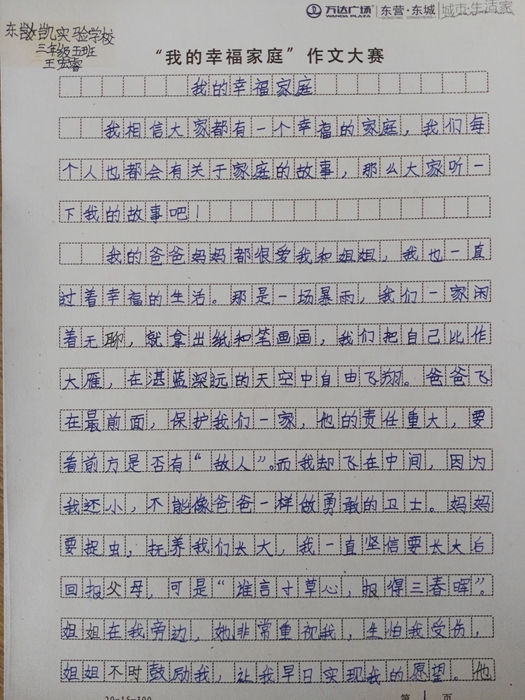 万达广场 WANDA PLAZA 东营·东城 城市·生活家
东凯实验学校
三年级五班
王宏睿
“我的幸福家庭”作文大赛
我的幸福家庭
我相信大家都有一个幸福的家庭，我们每
个人也都会有关于家庭的故事，那么大家听一
下我的故事吧！
我的爸爸妈妈都很爱我和姐姐，我也一直
过着幸福的生活。那是一场暴雨，我们一家闲
着无聊，就拿出纸和笔画画，我们把自己比作
大雁，在湛蓝深远的天空中自由飞翔。爸爸飞
在最前面，保护我们一家，他的责任重大，要
看前方是否有“敌人”。而我却飞在中间，因为
我还小，不能像爸爸一样做勇敢的卫士。妈妈
要捉虫，抚养我们长大，我一直坚信要长大后
回报父母，可是“谁言寸草心，报得三春晖”。
姐姐在我旁边，她非常重视我，生怕我受伤，
姐姐不时鼓励我，让我早日实现我的愿望。他
20×15=300 第 1 页